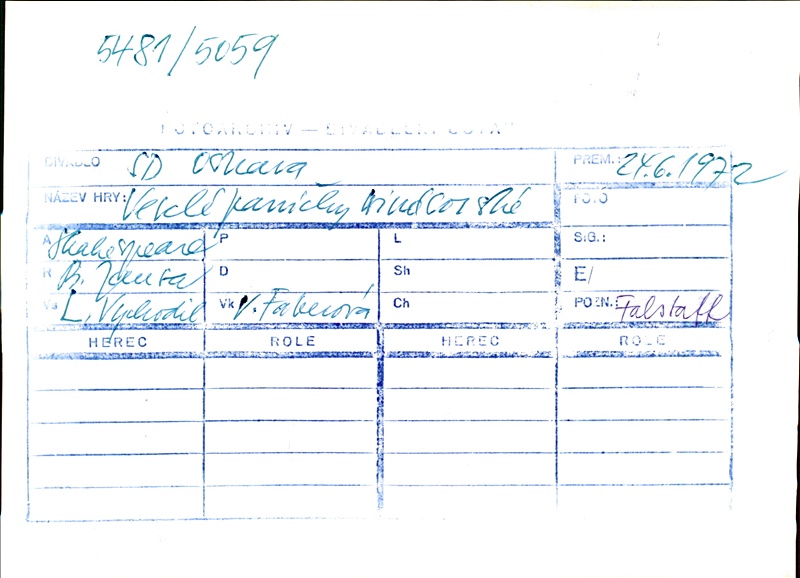 5481/5059
FOTOARCHIV — DIVADELNÍ ÚSTAV
DIVADLO SD Ostrava PREM.: 24.6.1972
NÁZEV HRY: Veselé paničky windsorské FOTO
A Shakespeare P L SIG.:
R B. Jansa D Sh E/
Vs L. Vychodil Vk V. Faberová Ch POZN.: Falstaff
HEREC ROLE HEREC ROLE